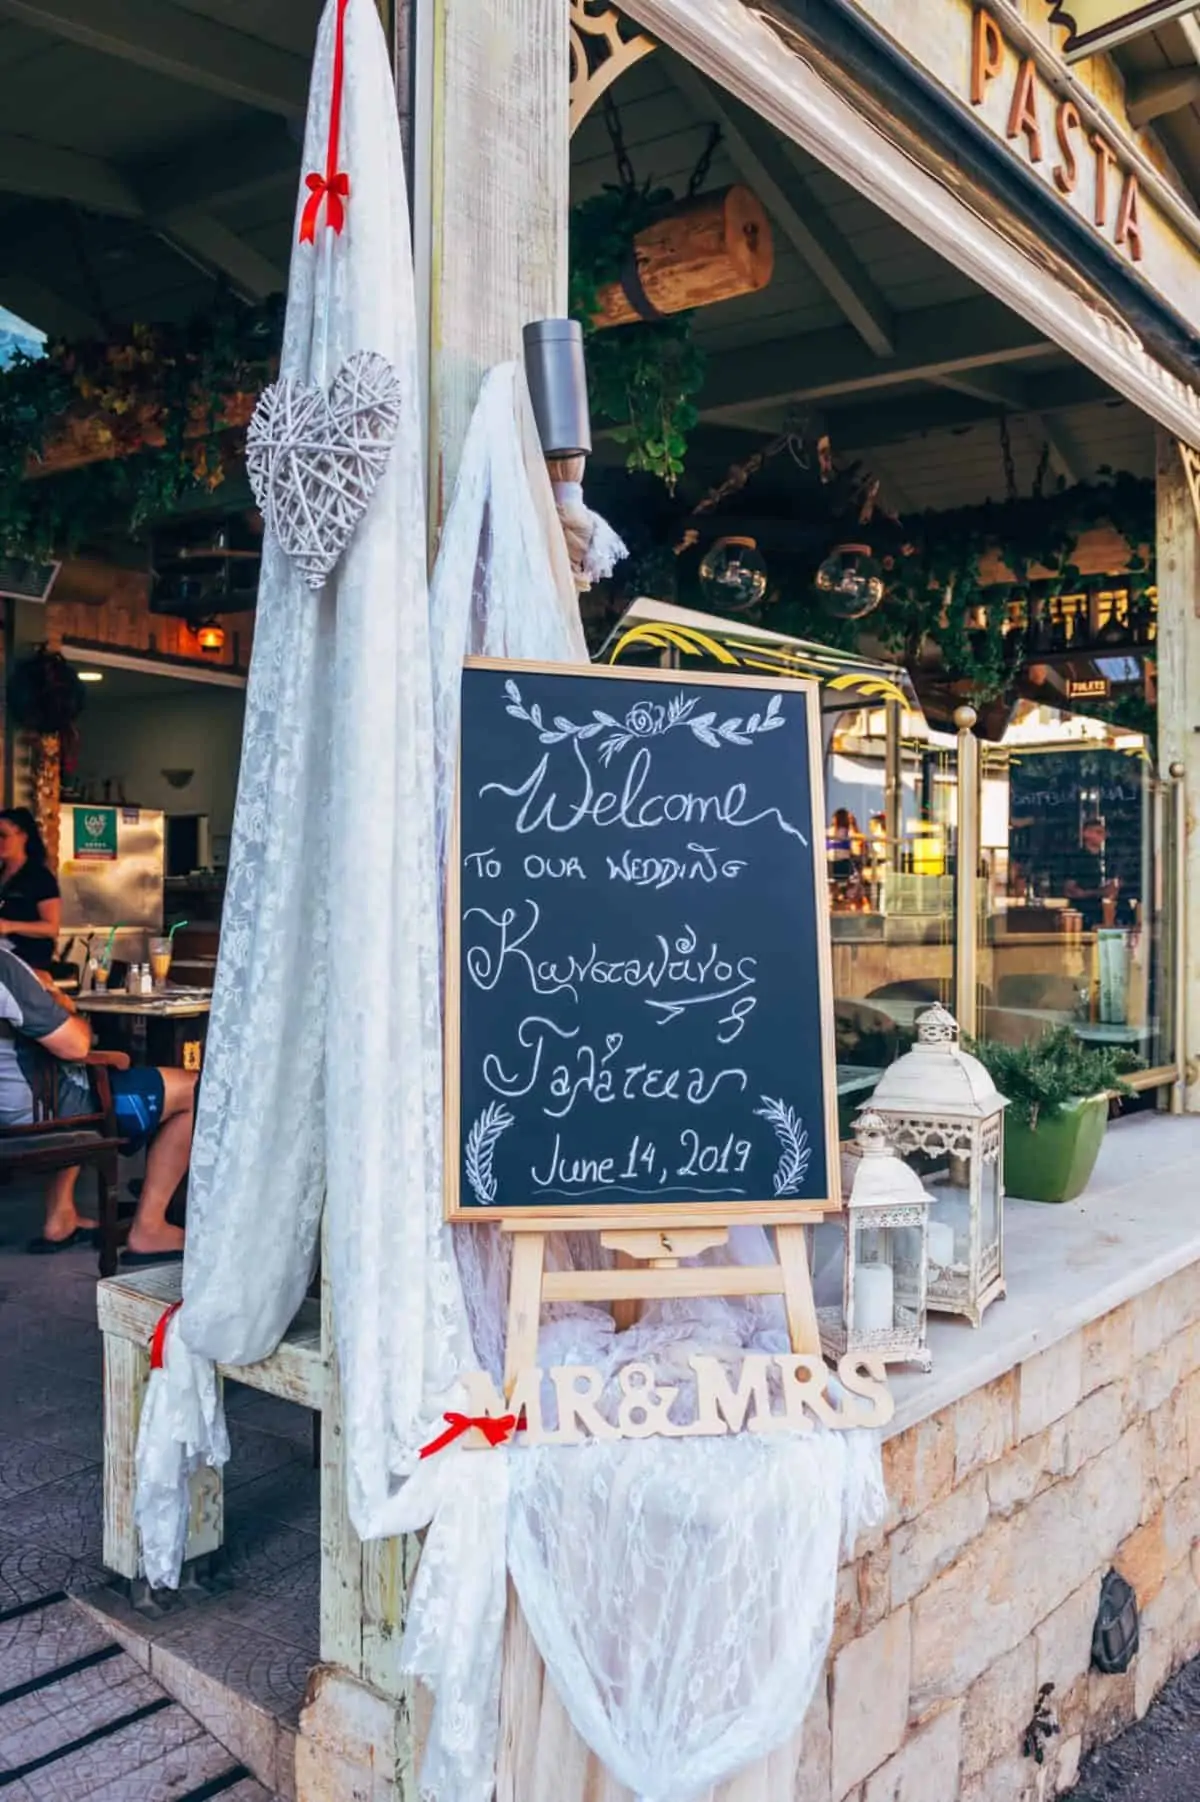 PASTA
TOILETS
Welcome
TO OUR WEDDING
Κωνσταντίνος
&
Γαλάτεια
June 14, 2019
MR&MRS
LOVE